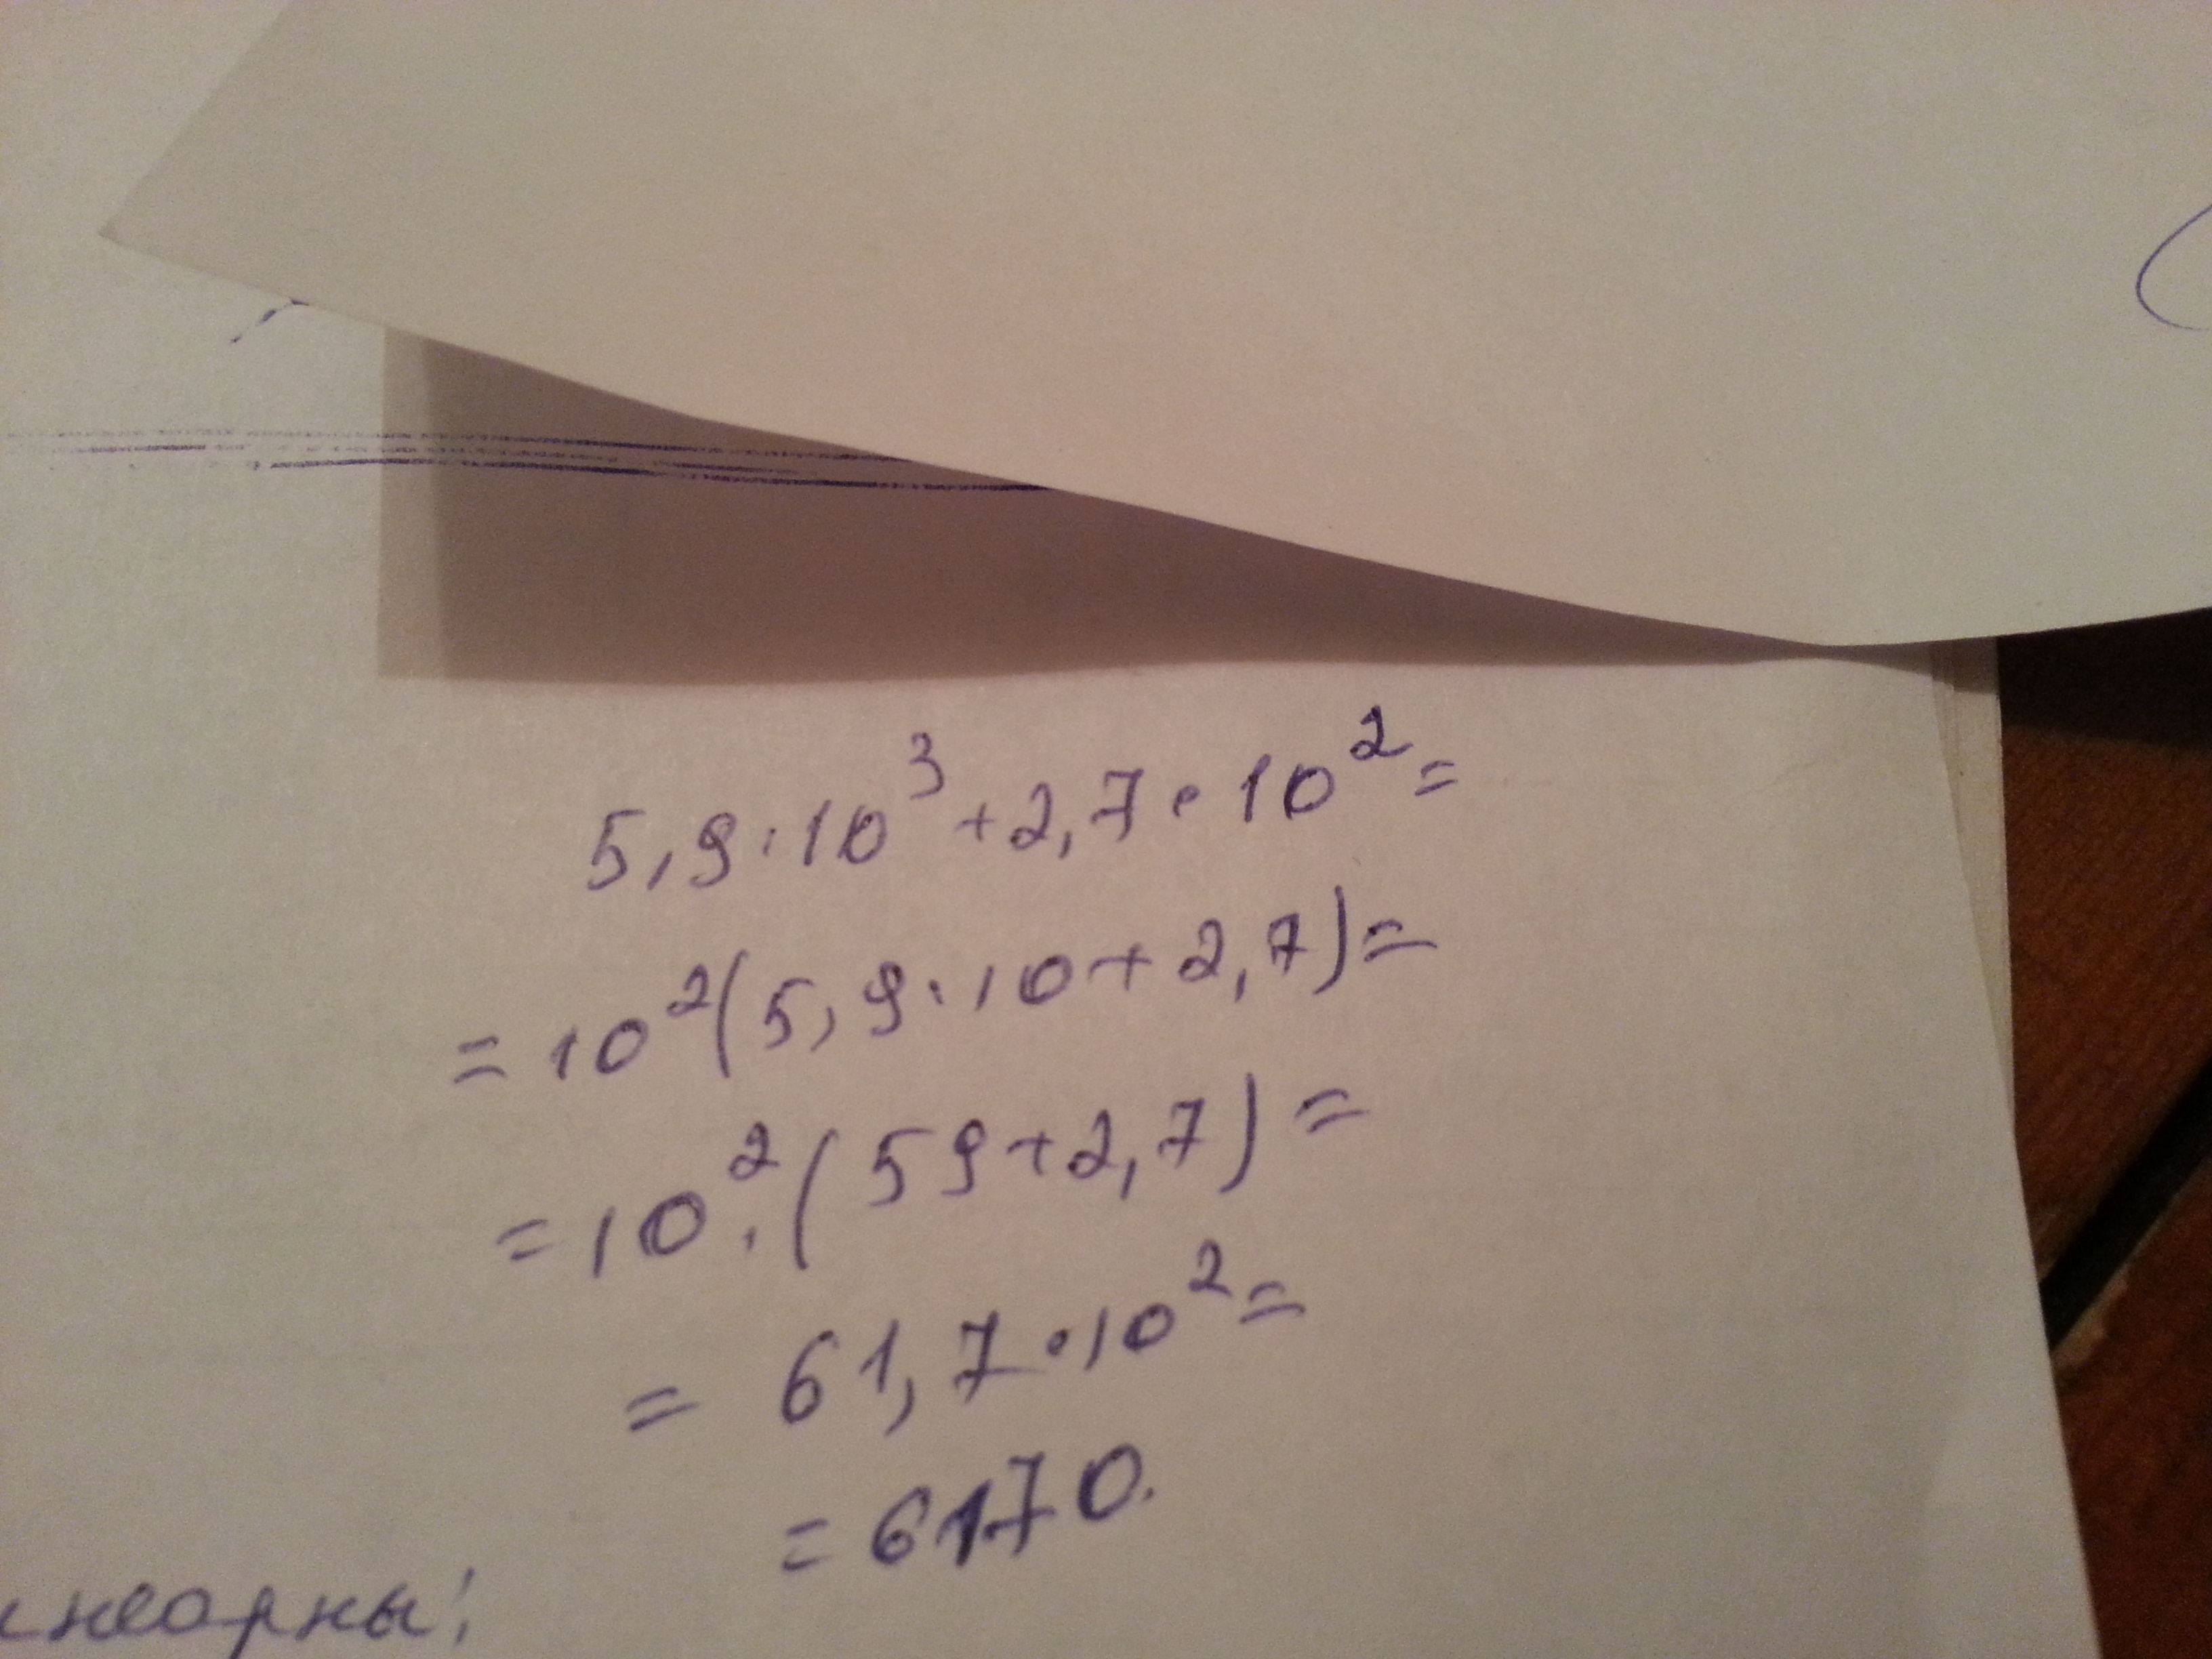 5,9·10³+2,7·10²=
=10²(5,9·10+2,7)=
=10²·(59+2,7)=
=61,7·10²=
=6170.